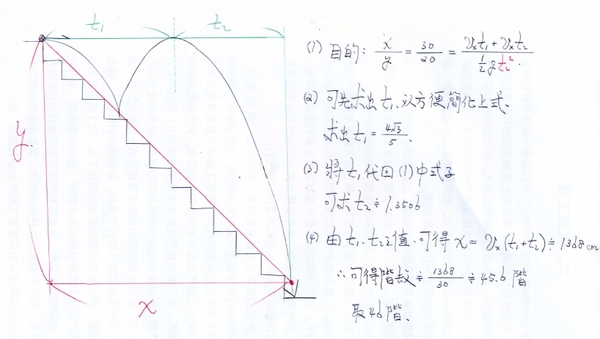 t₁ t₂
y
x
(1) 目的: x/y = 30/20 = (Vxt₁ + Vxt₂)/(½gt₂²).
(2) 可先求出 t₁, 以方便簡化上式.
求出 t₁ = 4√3/5.
(3) 將 t₁ 代回 (1) 中式子
可求 t₂ ≑ 1.3506
(4) 由 t₁, t₂ 之值, 可得 x = Vx(t₁+t₂) ≑ 1368 cm
∴ 可得階數 ≑ 1368/30 ≑ 45.6 階
取 46 階.